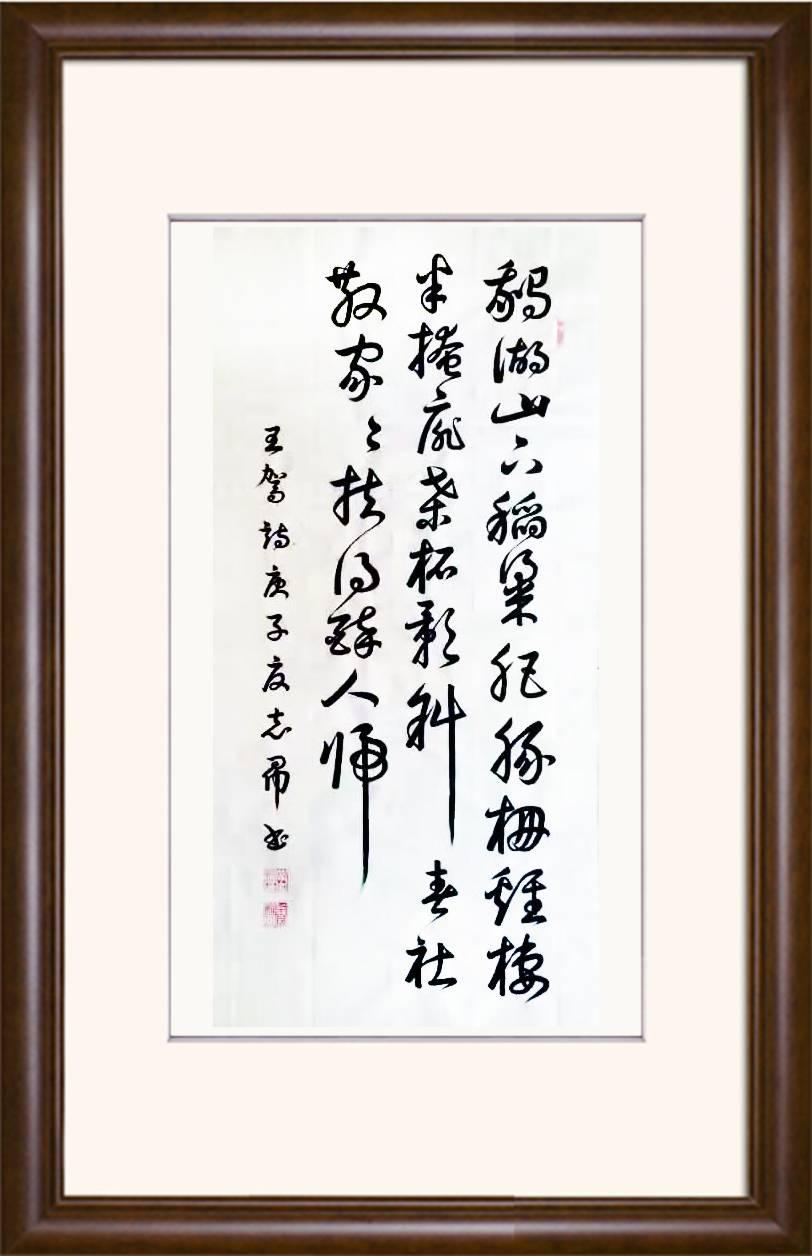 鵝湖山下稻粱肥豚柵雞棲
半掩扉桑柘影斜春社
散家々扶得醉人歸
王駕詩庚子夏志書